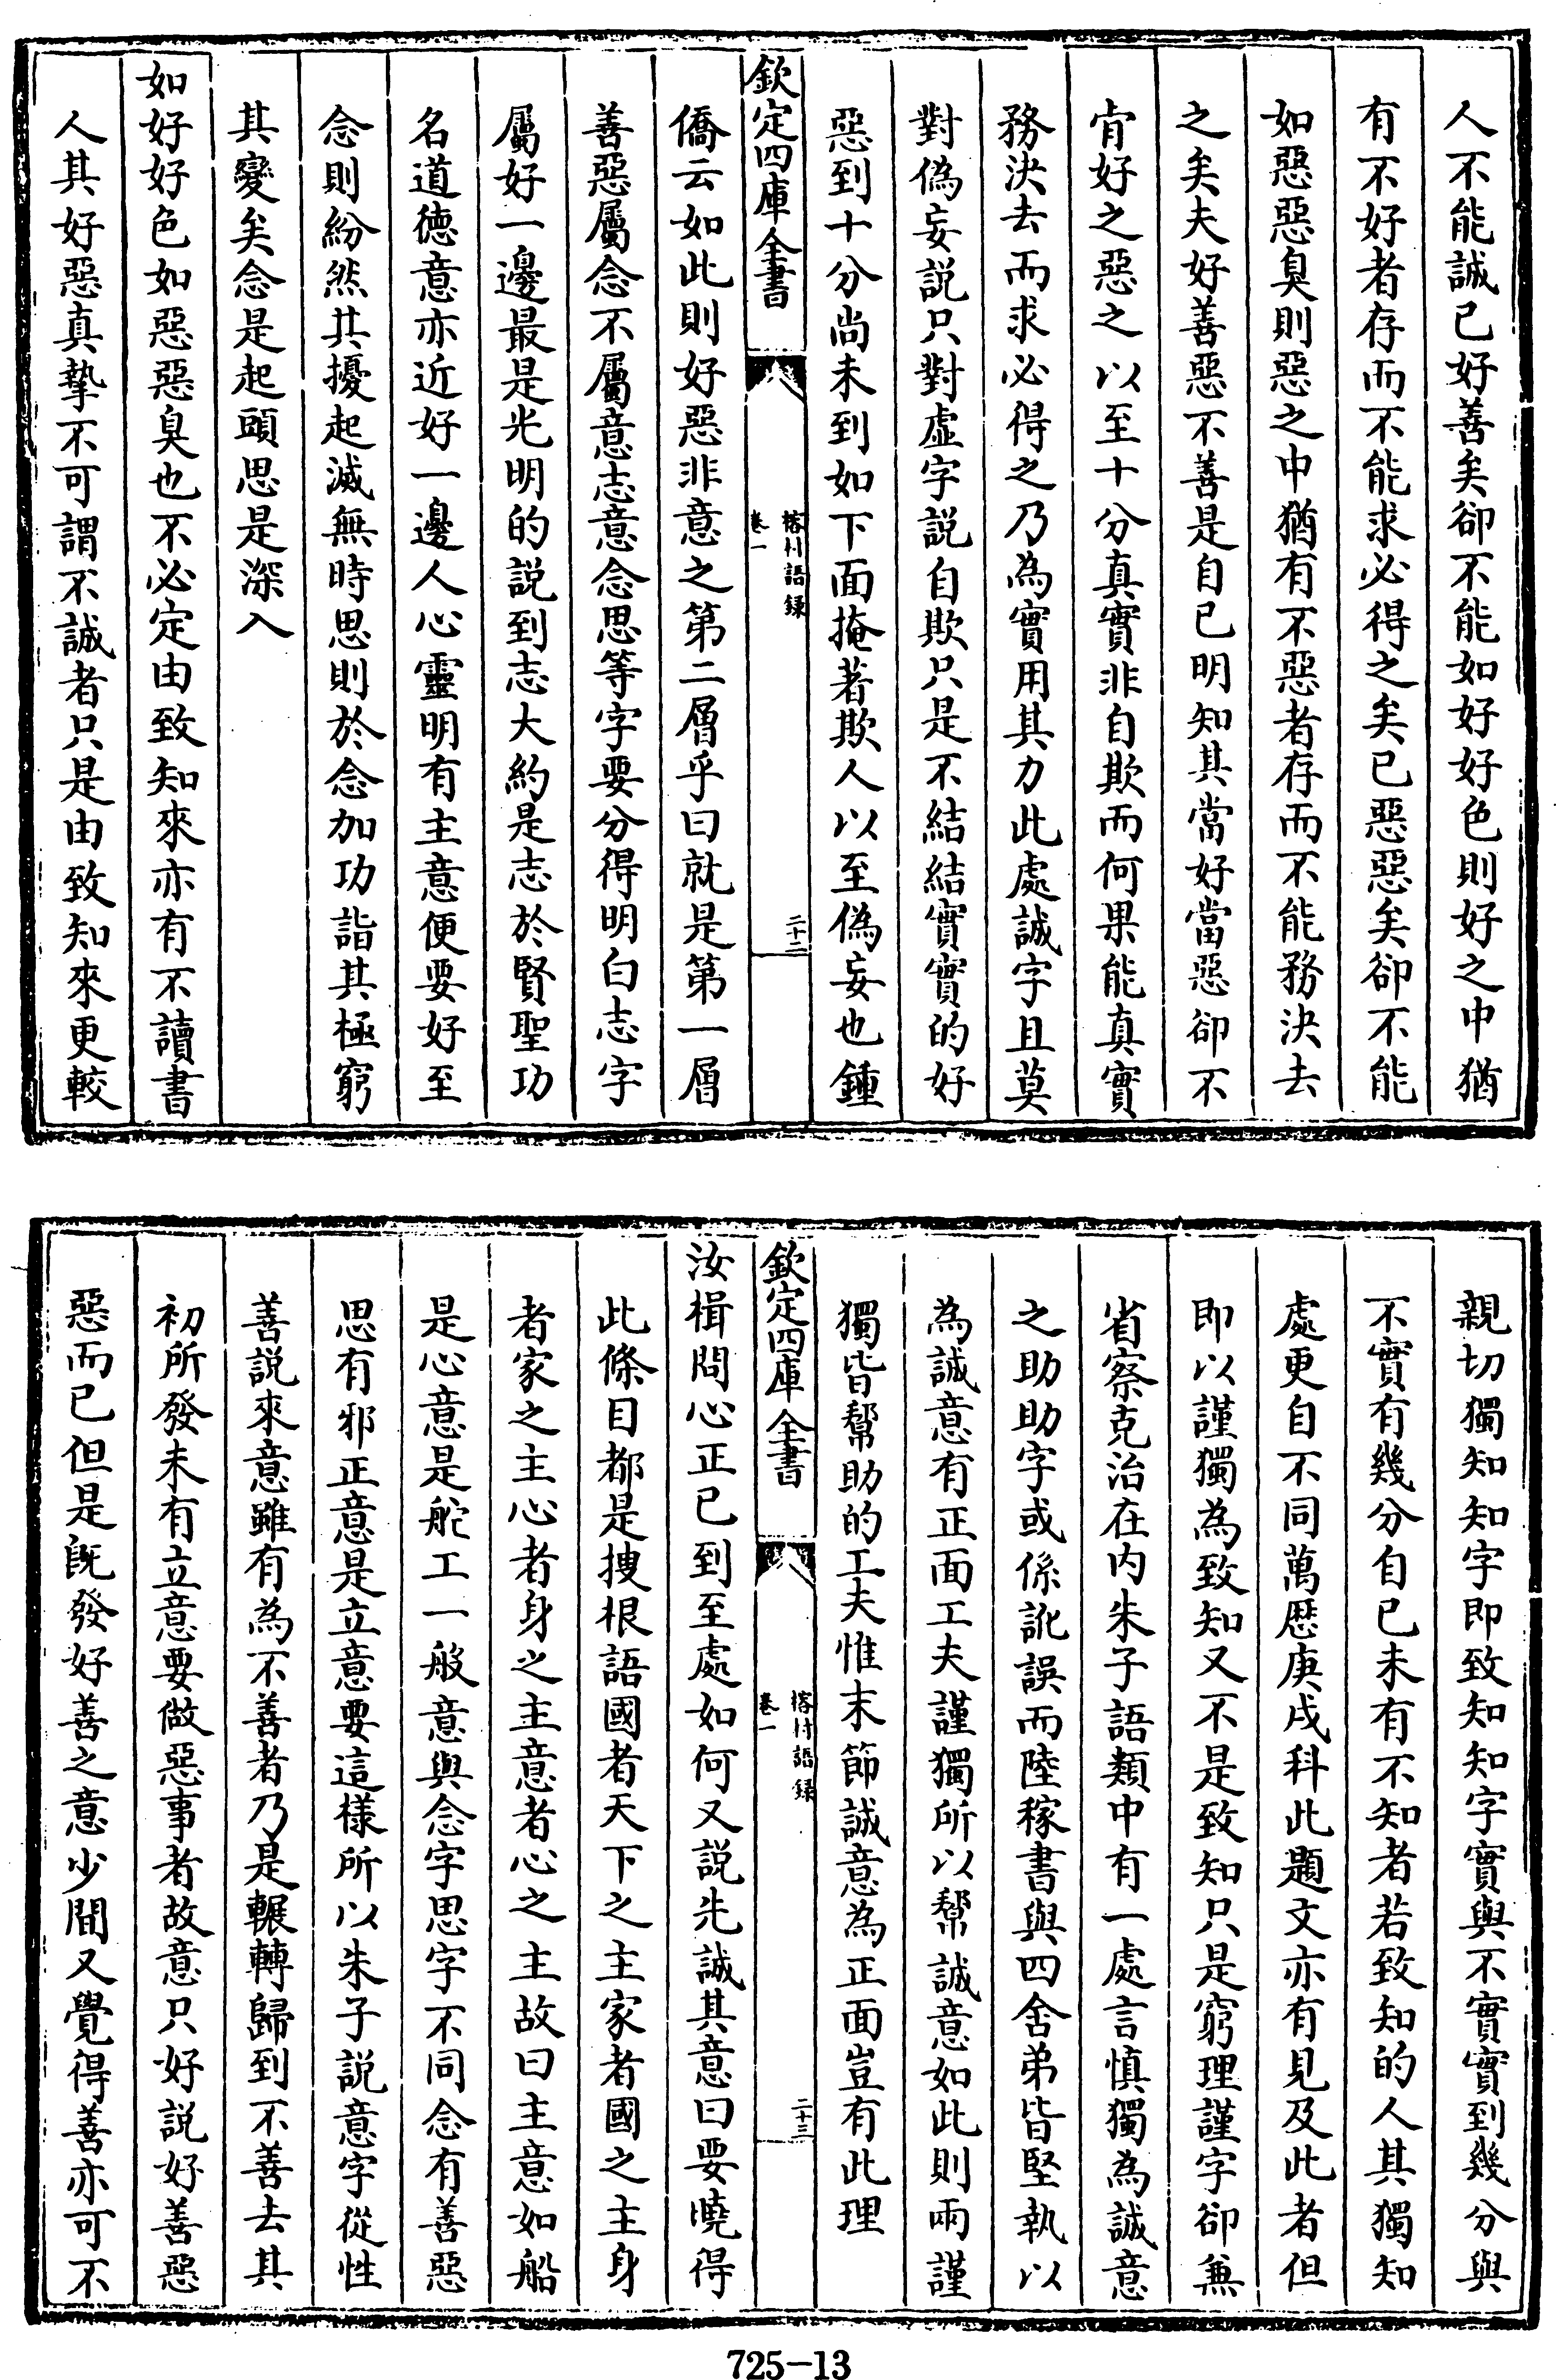 人不能誠已好善矣卻不能如好好色則好之中猶
有不好者存而不能求必得之矣已惡惡矣卻不能
如惡惡臭則惡之中猶有不惡者存而不能務決去
之矣夫好善惡不善是自已明知其當好當惡卻不
肯好之惡之以至十分真實非自欺而何果能真實
務決去而求必得之乃為實用其力此處誠字且莫
對偽妄説只對虚字説自欺只是不結結實實的好
惡到十分尚未到如下面掩著欺人以至偽妄也鍾
欽定四庫全書
榕村語録
卷一
二十二
僑云如此則好惡非意之第二層乎曰就是第一層
善惡屬念不屬意志意念思等字要分得明白志字
屬好一邊最是光明的説到志大約是志於賢聖功
名道德意亦近好一邊人心靈明有主意便要好至
念則紛然其擾起滅無時思則於念加功詣其極窮
其變矣念是起頭思是深入
如好好色如惡惡臭也不必定由致知來亦有不讀書
人其好惡真摯不可謂不誠者只是由致知來更較
親切獨知知字即致知知字實與不實實到幾分與
不實有幾分自已未有不知者若致知的人其獨知
處更自不同萬歴庚戌科此題文亦有見及此者但
即以謹獨為致知又不是致知只是窮理謹字卻兼
省察克治在内朱子語類中有一處言慎獨為誠意
之助助字或係訛誤而陸稼書與四舍弟皆堅執以
為誠意有正面工夫謹獨所以幫誠意如此則兩謹
獨皆幫助的工夫惟末節誠意為正面豈有此理
欽定四庫全書
榕村語録
卷一
二十三
汝楫問心正已到至處如何又説先誠其意曰要曉得
此條目都是搜根語國者天下之主家者國之主身
者家之主心者身之主意者心之主故曰主意如船
是心意是舵工一般意與念字思字不同念有善惡
思有邪正意是立意要這樣所以朱子説意字從性
善説來意雖有為不善者乃是輾轉歸到不善去其
初所發未有立意要做惡事者故意只好説好善惡
惡而已但是既發好善之意少間又覺得善亦可不
725-13